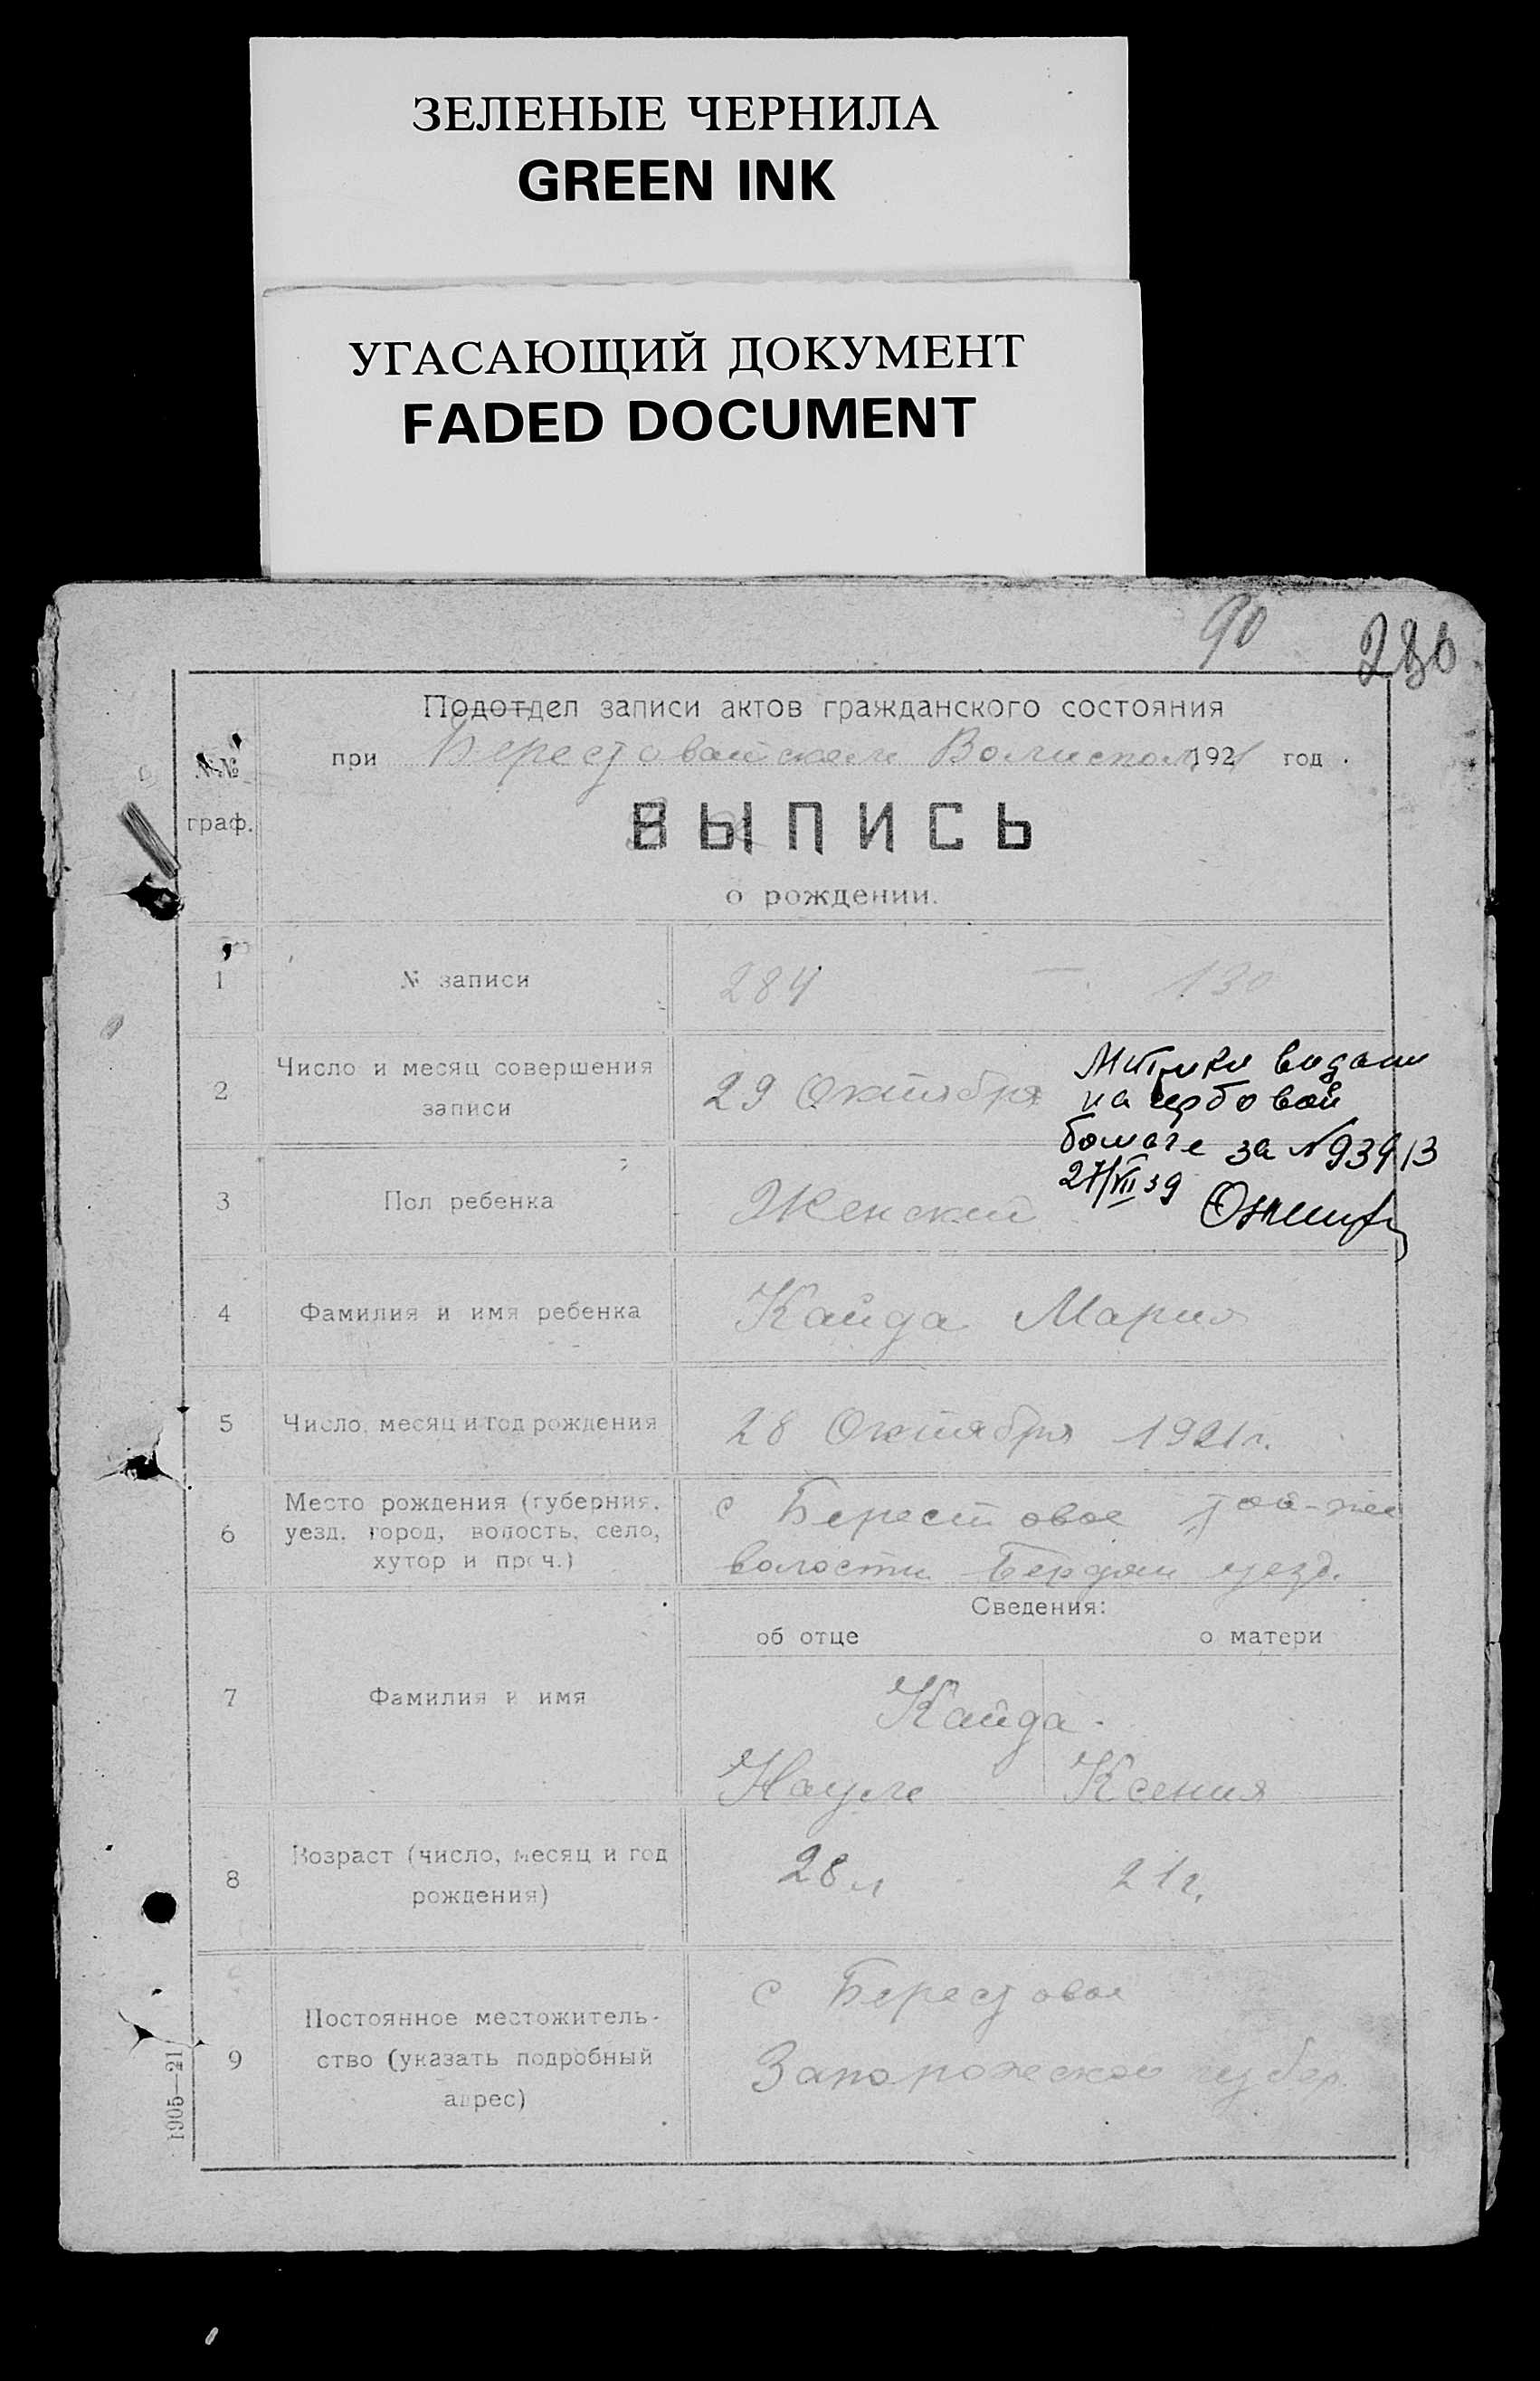 ЗЕЛЕНЫЕ ЧЕРНИЛА
GREEN INK
УГАСАЮЩИЙ ДОКУМЕНТ
FADED DOCUMENT
90
280
Подотдел записи актов гражданского состояния
№№ граф.
при Берестовайском Волисполк 1921 год.
ВЫПИСЬ
о рождении.
1 № записи 284 — 130
2 Число и месяц совершения записи 29 Октября
Митрики видани
на гербовой
бомаге за №93913
27/VII 39
3 Пол ребенка Женский
4 Фамилия и имя ребенка Кайда Мария
5 Число, месяц и год рождения 28 Октября 1921г.
6 Место рождения (губерния, уезд, город, волость, село, хутор и проч.) с Берестовое той-же
волости Бердян уезд.
Сведения:
об отце о матери
7 Фамилия и имя Кайда
Наум Ксения
8 Возраст (число, месяц и год рождения) 28 л 21 г.
9 Постоянное местожитель-
ство (указать подробный
адрес)
с Берестовое
Запорожской губер.
1905—21